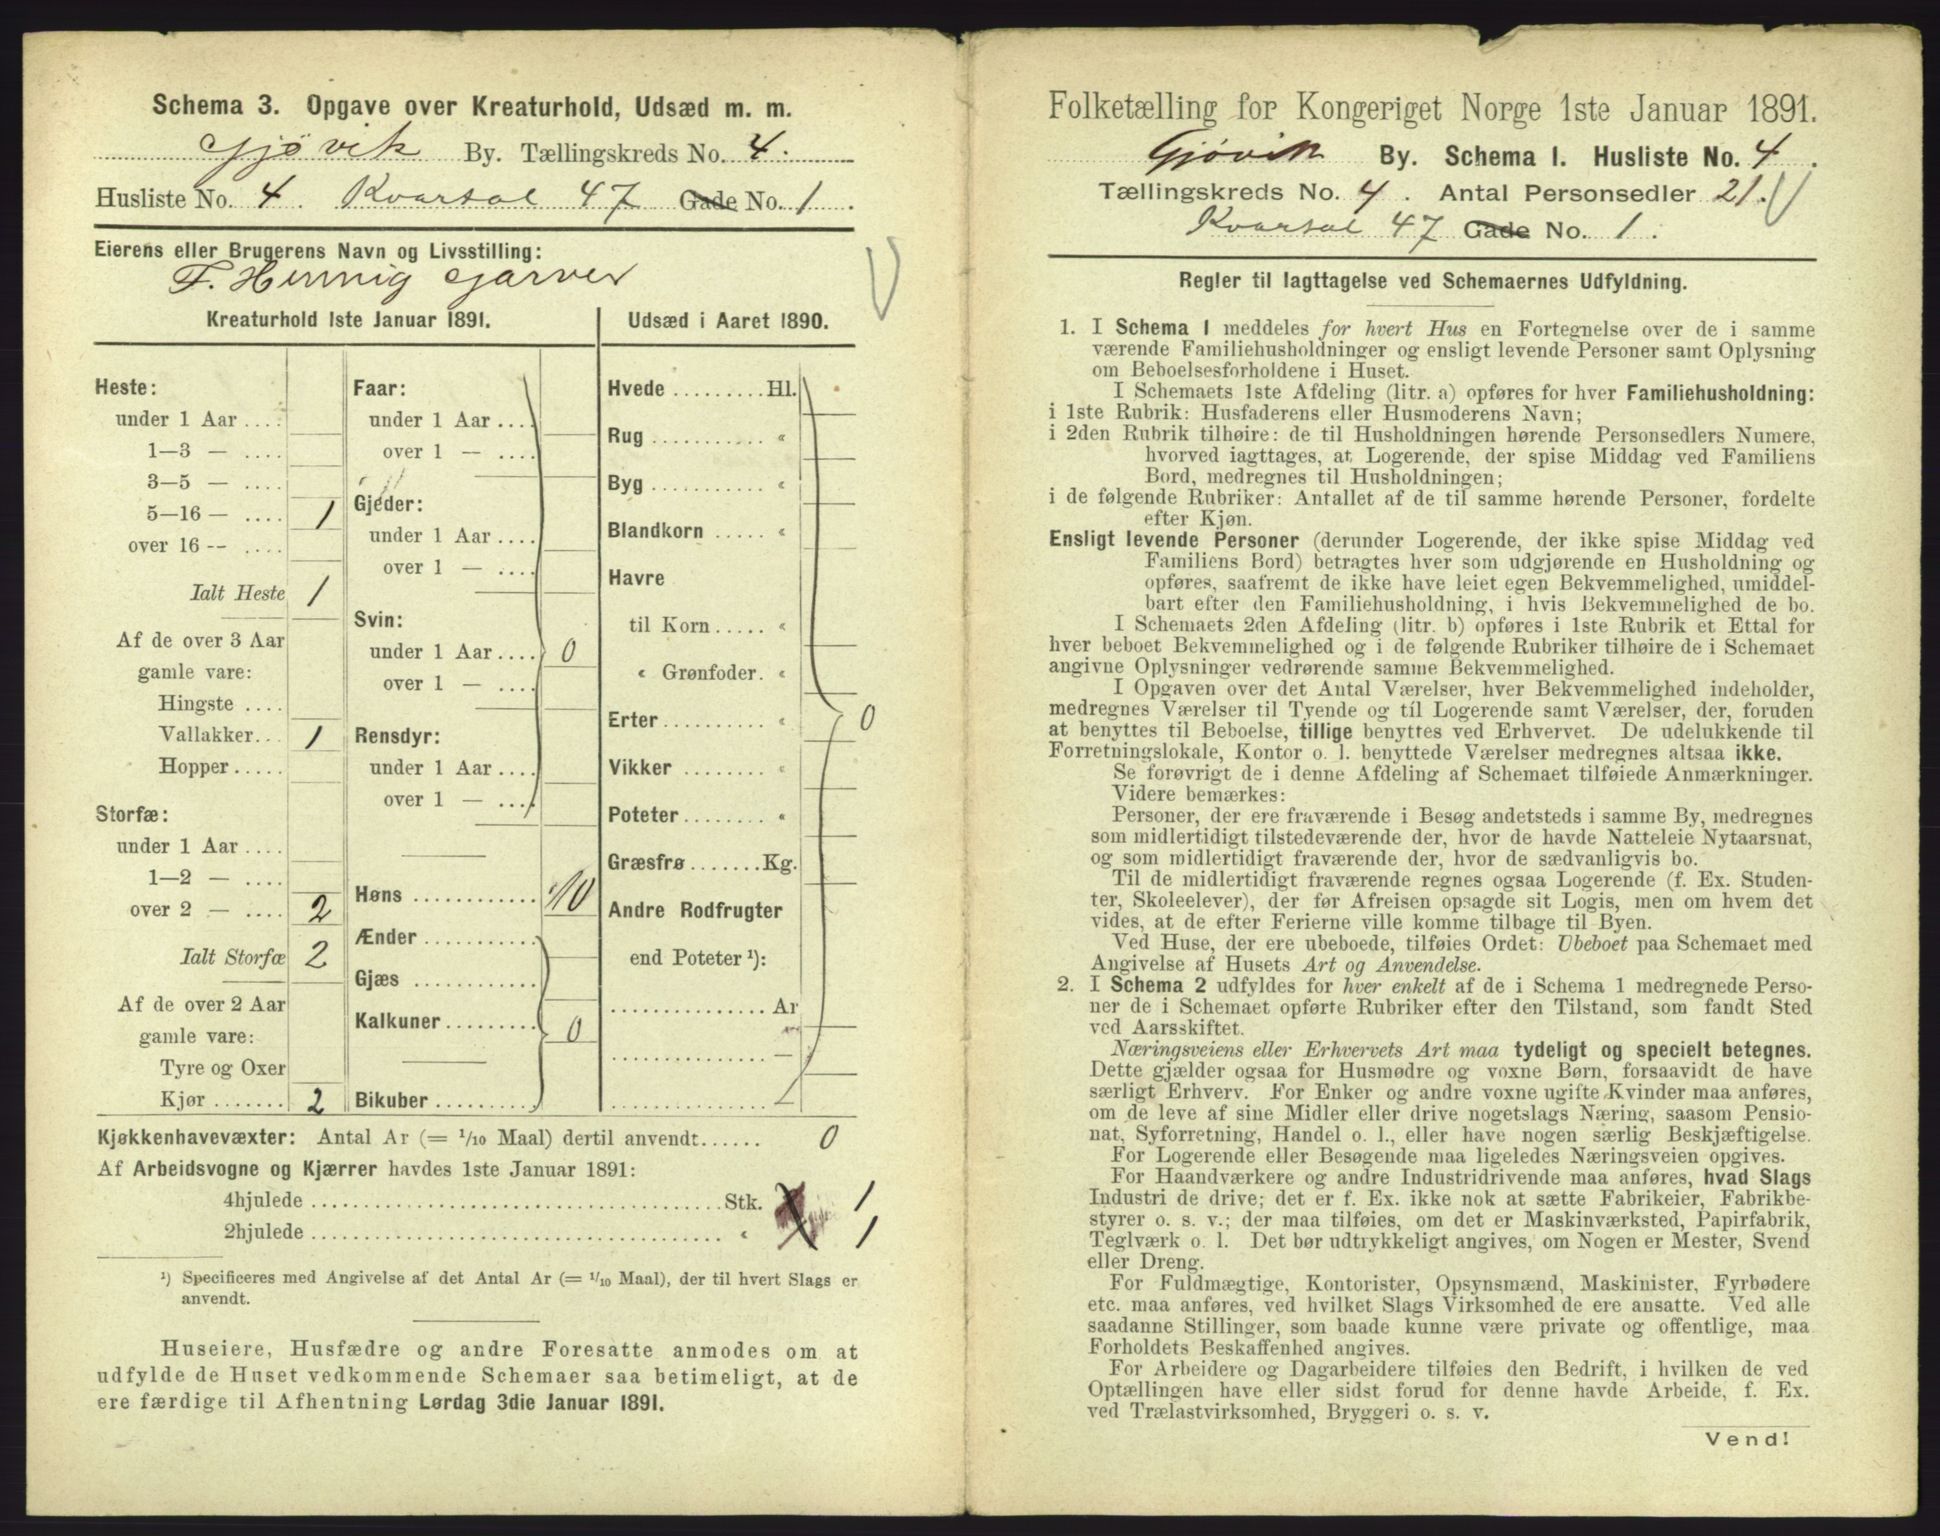 Schema 3. Opgave over Kreaturhold, Udsæd m. m.
Gjøvik By. Tællingskreds No. 4.
Husliste No. 4. Kvartal 47 Gade No. 1.
Eierens eller Brugerens Navn og Livsstilling:
F. Hennig Garver
Kreaturhold 1ste Januar 1891.
Heste:
under 1 Aar ....
1—3 — ....
3—5 — ....
5—16 — .... 1
over 16 -- ....
Ialt Heste 1
Af de over 3 Aar
gamle vare:
Hingste ....
Vallakker... 1
Hopper.....
Storfæ:
under 1 Aar ....
1—2 — ....
over 2 — .... 2
Ialt Storfæ 2
Af de over 2 Aar
gamle vare:
Tyre og Oxer
Kjør ....... 2
Faar:
under 1 Aar ....
over 1 — ....
Gjeder:
under 1 Aar ....
over 1 — ....
Svin:
under 1 Aar .... 0
over 1 — ....
Rensdyr:
under 1 Aar ....
over 1 — ....
Høns ............ 10
Ænder ...........
Gjæs ............
Kalkuner ......... 0
Bikuber ..........
Udsæd i Aaret 1890.
Hvede ......... Hl.
Rug ........... "
Byg ........... "
Blandkorn ..... "
Havre
til Korn ..... "
" Grønfoder. "
Erter .......... " 0
Vikker ........ "
Poteter ........ "
Græsfrø ....... Kg.
Andre Rodfrugter
end Poteter ¹):
............... Ar
............... —
Kjøkkenhavevæxter: Antal Ar (= 1/10 Maal) dertil anvendt...... 0
Af Arbeidsvogne og Kjærrer havdes 1ste Januar 1891:
4hjulede ........................................ Stk. 1
2hjulede ........................................ " 1
¹) Specificeres med Angivelse af det Antal Ar (= 1/10 Maal), der til hvert Slags er
anvendt.
Huseiere, Husfædre og andre Foresatte anmodes om at
udfylde de Huset vedkommende Schemaer saa betimeligt, at de
ere færdige til Afhentning Lørdag 3die Januar 1891.
Folketælling for Kongeriget Norge 1ste Januar 1891.
Gjøvik By. Schema I. Husliste No. 4.
Tællingskreds No. 4. Antal Personsedler 21.
Kvartal 47 Gade No. 1.
Regler til Iagttagelse ved Schemaernes Udfyldning.
1. I Schema 1 meddeles for hvert Hus en Fortegnelse over de i samme
værende Familiehusholdninger og ensligt levende Personer samt Oplysning
om Beboelsesforholdene i Huset.
I Schemaets 1ste Afdeling (litr. a) opføres for hver Familiehusholdning:
i 1ste Rubrik: Husfaderens eller Husmoderens Navn;
i 2den Rubrik tilhøire: de til Husholdningen hørende Personsedlers Numere,
hvorved iagttages, at Logerende, der spise Middag ved Familiens
Bord, medregnes til Husholdningen;
i de følgende Rubriker: Antallet af de til samme hørende Personer, fordelte
efter Kjøn.
Ensligt levende Personer (derunder Logerende, der ikke spise Middag ved
Familiens Bord) betragtes hver som udgjørende en Husholdning og
opføres, saafremt de ikke have leiet egen Bekvemmelighed, umiddel-
bart efter den Familiehusholdning, i hvis Bekvemmelighed de bo.
I Schemaets 2den Afdeling (litr. b) opføres i 1ste Rubrik et Ettal for
hver beboet Bekvemmelighed og i de følgende Rubriker tilhøire de i Schemaet
angivne Oplysninger vedrørende samme Bekvemmelighed.
I Opgaven over det Antal Værelser, hver Bekvemmelighed indeholder,
medregnes Værelser til Tyende og til Logerende samt Værelser, der, foruden
at benyttes til Beboelse, tillige benyttes ved Erhvervet. De udelukkende til
Forretningslokale, Kontor o. l. benyttede Værelser medregnes altsaa ikke.
Se forøvrigt de i denne Afdeling af Schemaet tilføiede Anmærkninger.
Videre bemærkes:
Personer, der ere fraværende i Besøg andetsteds i samme By, medregnes
som midlertidigt tilstedeværende der, hvor de havde Natteleie Nytaarsnat,
og som midlertidigt fraværende der, hvor de sædvanligvis bo.
Til de midlertidigt fraværende regnes ogsaa Logerende (f. Ex. Studen-
ter, Skoleelever), der før Afreisen opsagde sit Logis, men om hvem det
vides, at de efter Ferierne ville komme tilbage til Byen.
Ved Huse, der ere ubeboede, tilføies Ordet: Ubeboet paa Schemaet med
Angivelse af Husets Art og Anvendelse.
2. I Schema 2 udfyldes for hver enkelt af de i Schema 1 medregnede Perso-
ner de i Schemaet opførte Rubriker efter den Tilstand, som fandt Sted
ved Aarsskiftet.
Næringsveiens eller Erhvervets Art maa tydeligt og specielt betegnes.
Dette gjælder ogsaa for Husmødre og voxne Børn, forsaavidt de have
særligt Erhverv. For Enker og andre voxne ugifte Kvinder maa anføres,
om de leve af sine Midler eller drive nogetslags Næring, saasom Pensio-
nat, Syforretning, Handel o. l., eller have nogen særlig Beskjæftigelse.
For Logerende eller Besøgende maa ligeledes Næringsveien opgives.
For Haandværkere og andre Industridrivende maa anføres, hvad Slags
Industri de drive; det er f. Ex. ikke nok at sætte Fabrikeier, Fabrikbe-
styrer o. s. v.; der maa tilføies, om det er Maskinværksted, Papirfabrik,
Teglværk o. l. Det bør udtrykkeligt angives, om Nogen er Mester, Svend
eller Dreng.
For Fuldmægtige, Kontorister, Opsynsmænd, Maskinister, Fyrbødere
etc. maa anføres, ved hvilket Slags Virksomhed de ere ansatte. Ved alle
saadanne Stillinger, som baade kunne være private og offentlige, maa
Forholdets Beskaffenhed angives.
For Arbeidere og Dagarbeidere tilføies den Bedrift, i hvilken de ved
Optællingen have eller sidst forud for denne havde Arbeide, f. Ex.
ved Trælastvirksomhed, Bryggeri o. s. v.
Vend!